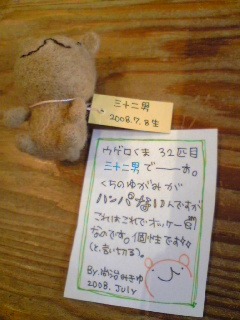 三十二男
2008.7.8生
ウゲロくま 32匹目
三十二男でーーす。
くちのゆがみが
ハンパないんですが
これはこれでオッケー
なのです。個性です
(と、言い切る)。
By.
2008. JULY